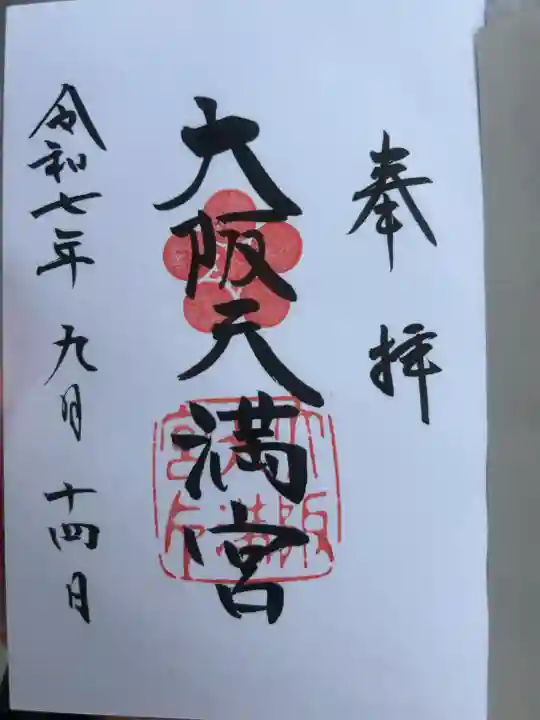 奉拝
大阪天満宮
令和七年九月十四日
大阪天満宮印